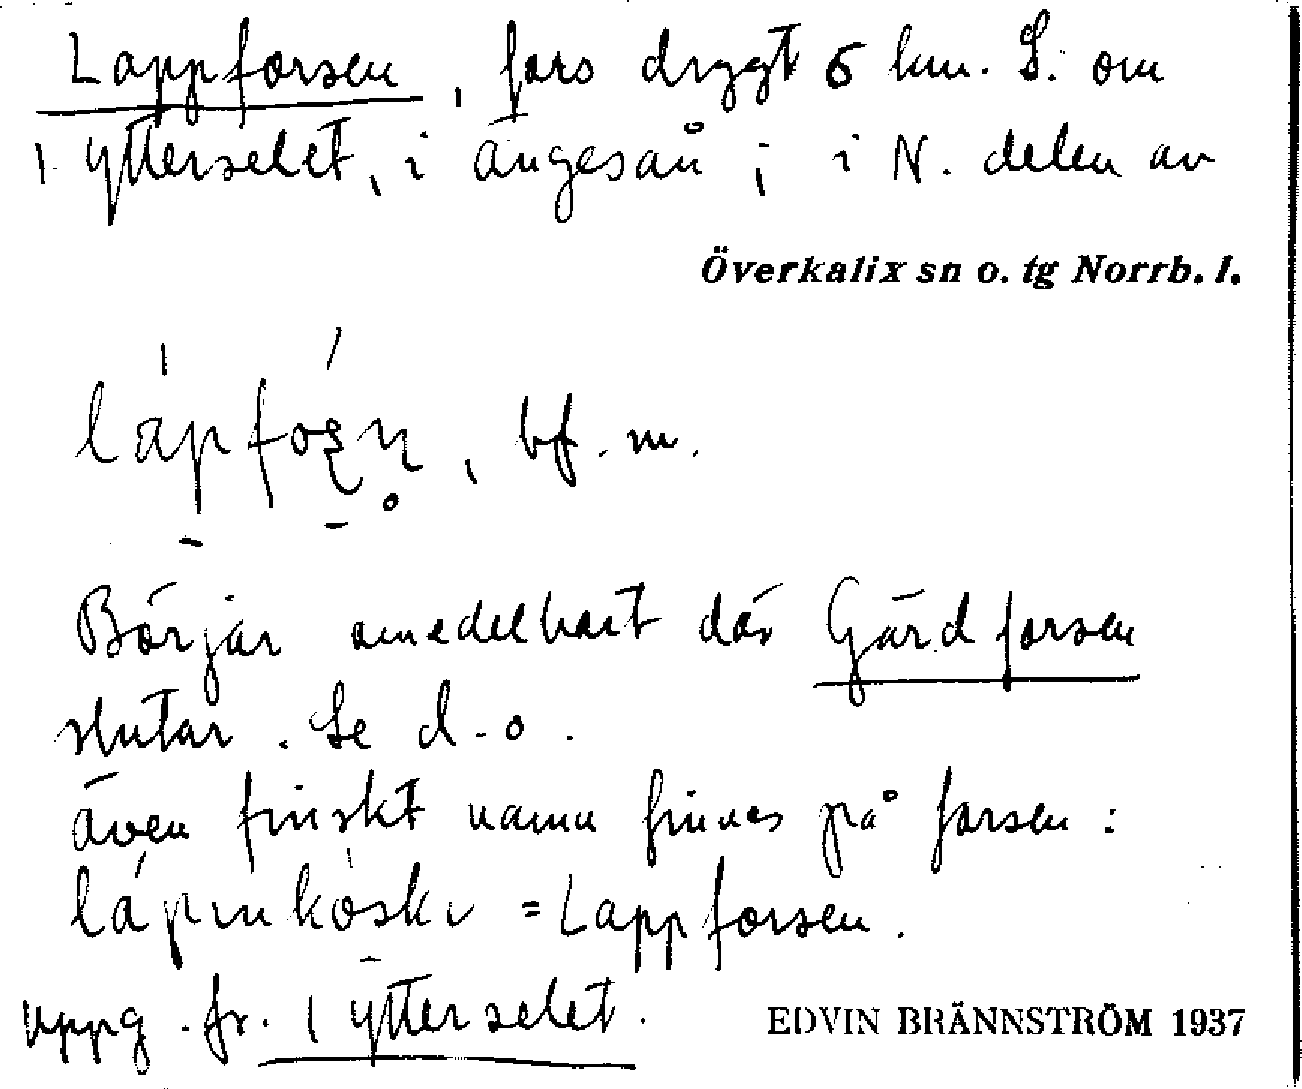 Lappforsen, fors drygt 6 km. S. om
1 Ytterselet, i Ängesån; i N. delen av
Överkalix sn o. tg Norrb. l.
bf. m.
Börjar omedelbart där Gärdforsen
slutar. Se d. o.
Även finskt namn finnes på forsen:
lápinkoski = Lappforsen.
Uppg. fr. 1 Ytterselet.
EDVIN BRÄNNSTRÖM 1937